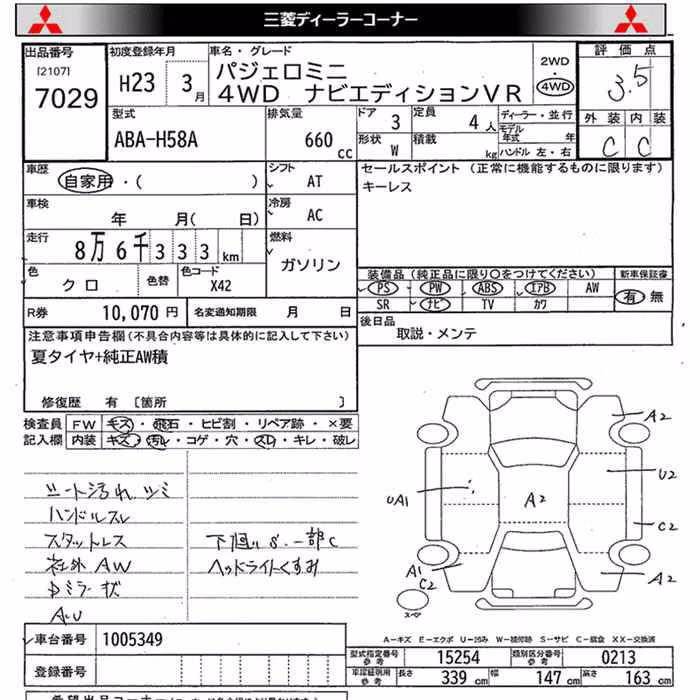 三菱ディーラーコーナー
出品番号
[2107]
7029
初度登録年月
H23 3月
車名・グレード
パジェロミニ
4WD ナビエディションVR
2WD
・
4WD
評価点
3.5
型式
ABA-H58A
排気量
660 cc
ドア 3
定員 4人
形状 W
積載 kg
ディーラー・並行
モデル年式 年
ハンドル 左・右
外装 内装
C C
車歴
自家用・( )
シフト
AT
セールスポイント (正常に機能するものに限ります)
キーレス
車検
年 月( 日)
冷房
AC
走行
8万6千333km
燃料
ガソリン
色
クロ
色替
色コード
X42
装備品(純正品に限り○をつけてください)
新車保証書
PS PW ABS エアB AW
有・無
SR ナビ TV カワ
R券 10,070円
名変通知期限 月 日
後日品
取説・メンテ
注意事項申告欄(不具合内容等は具体的に記入して下さい)
夏タイヤ+純正AW積
修復歴 有 [箇所 ]
検査員記入欄
FW キズ・飛石・ヒビ割・リペア跡・×要
内装 キズ・汚レ・コゲ・穴・スレ・キレ・破レ
シート汚れ シミ
ハンドルスレ
スタットレス
下廻りS.一部C
社外AW
ヘッドライトくすみ
A2
U2
UA1
A2
C2
A1
C2
A2
スペア
A-キズ E-エクボ U-凹み W-補修跡 S-サビ C-腐食 XX-交換済
車台番号 1005349
型式指定番号 参考 15254
類別区分番号 参考 0213
登録番号
長さ 339 cm 幅 147 cm 高さ 163 cm
希望出品コーナー